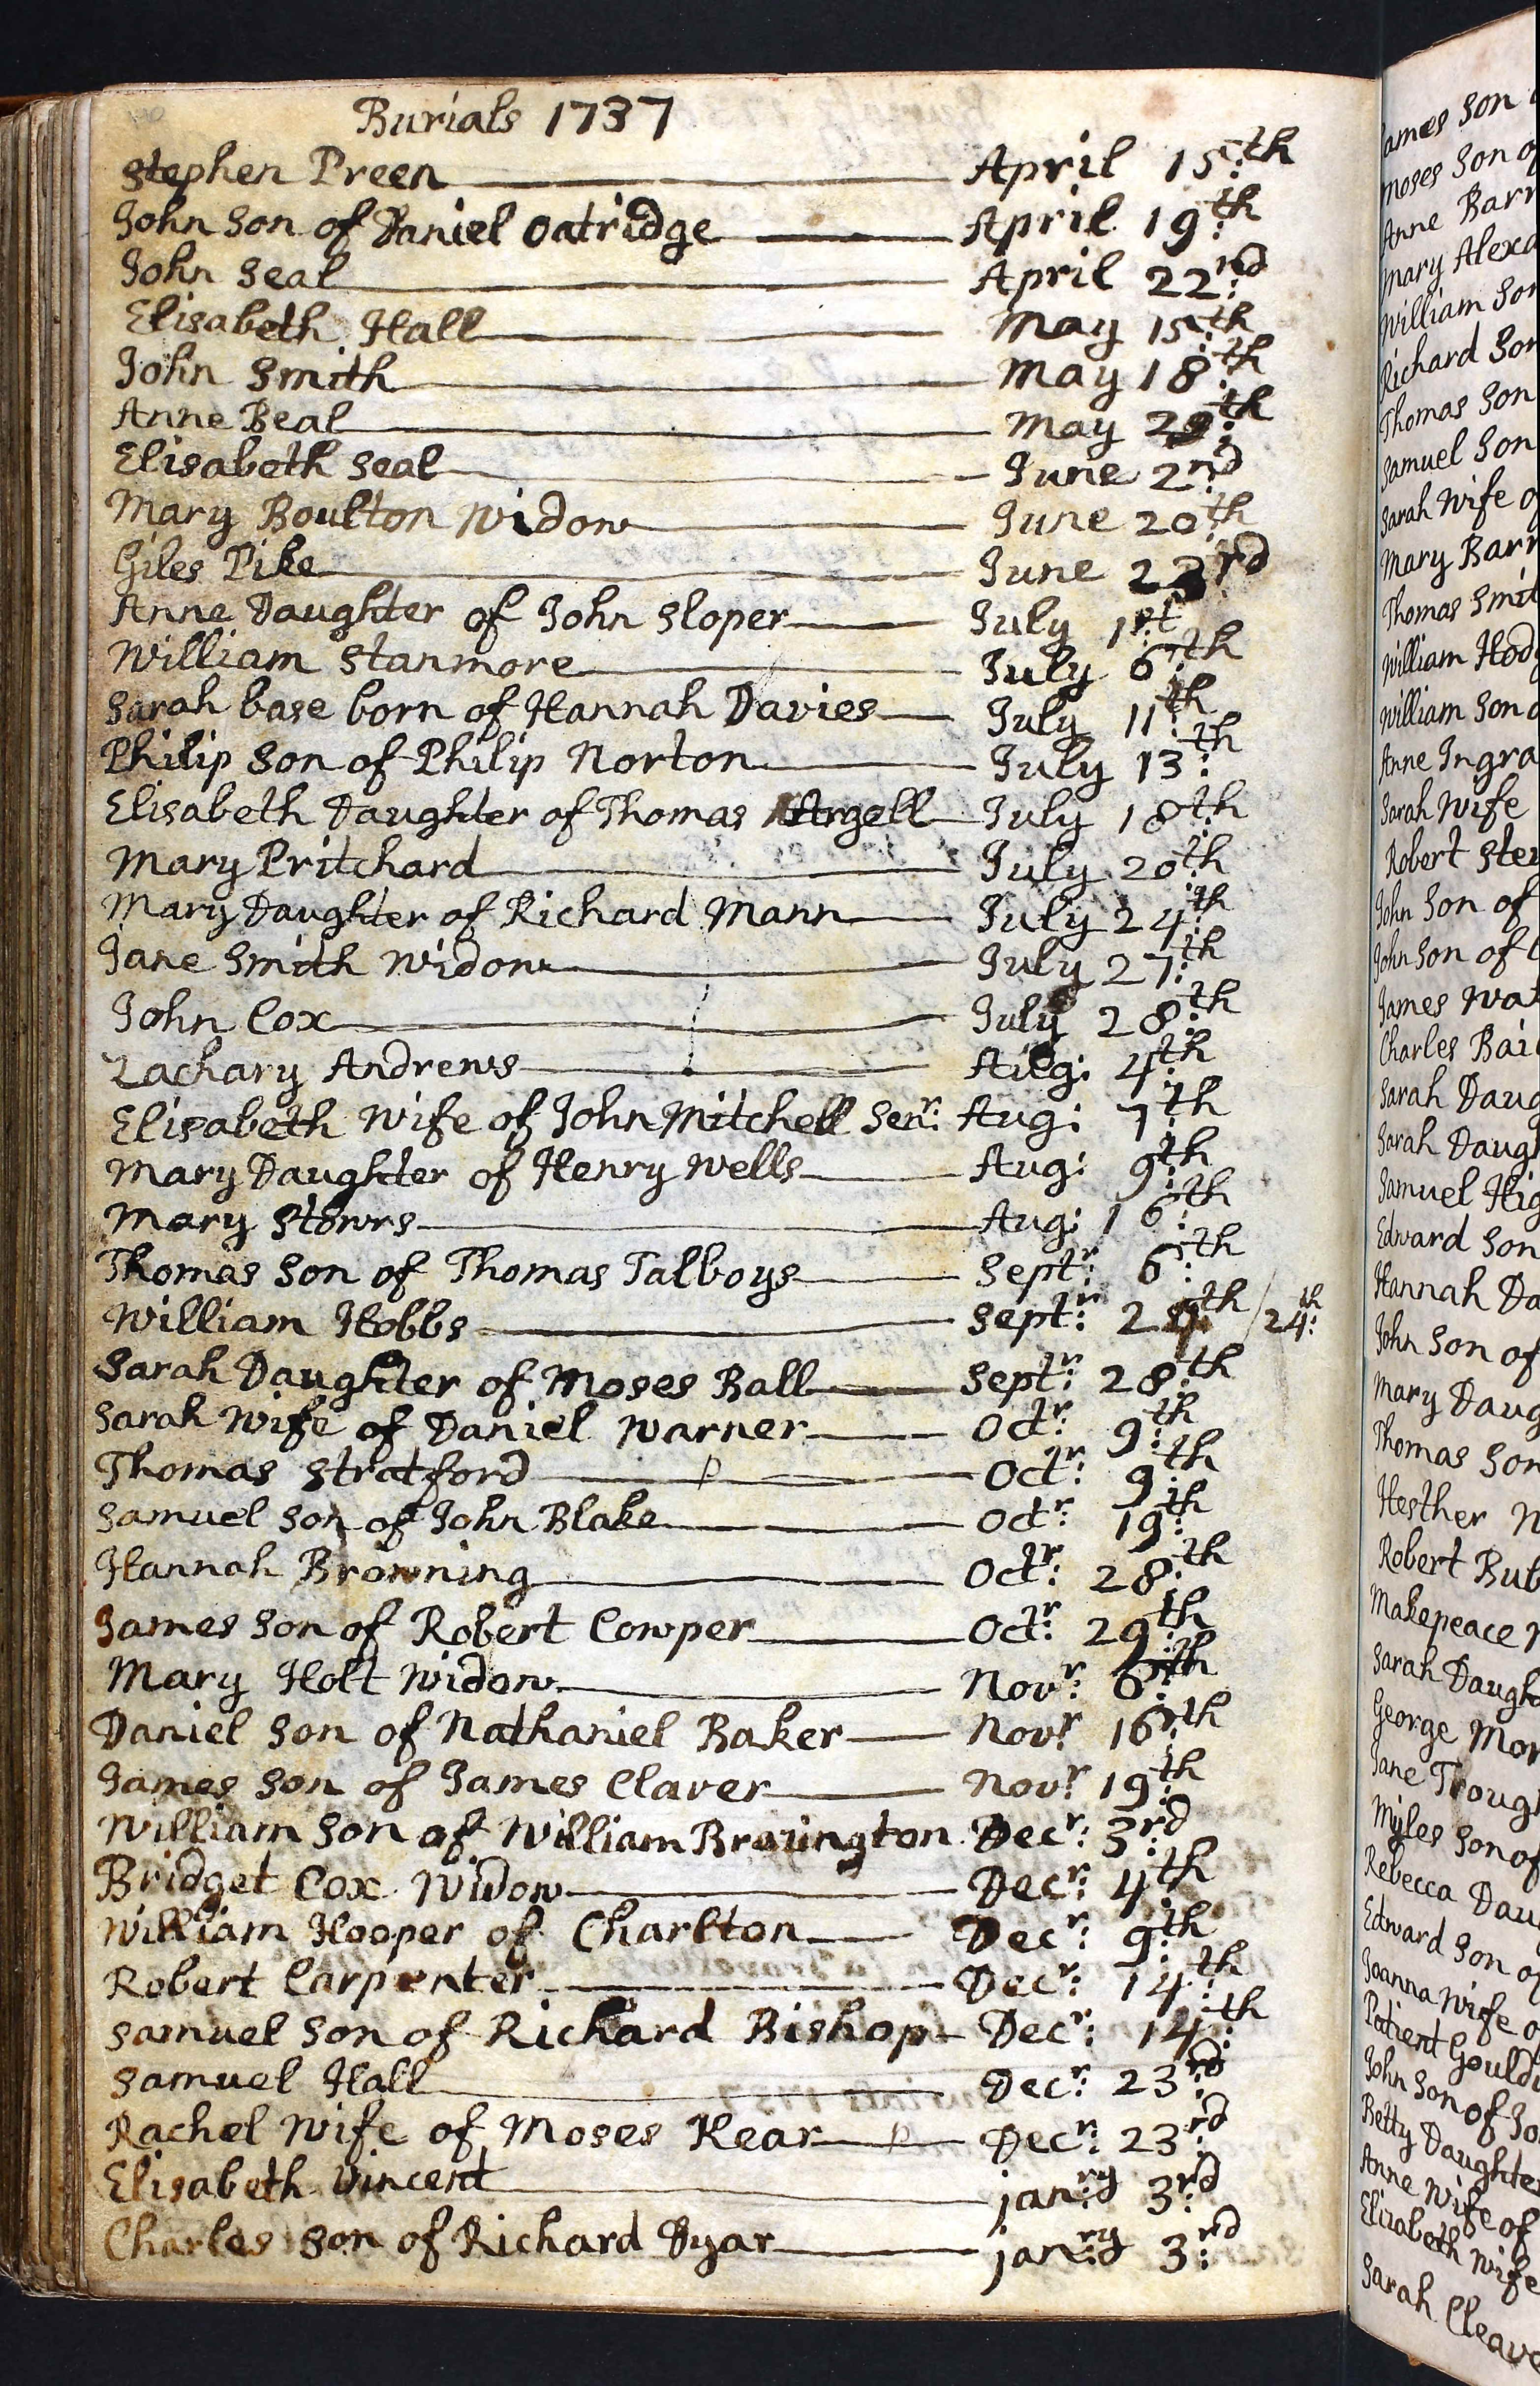 Burials 1737
Stephen Preen April 15th
John Son of Daniel Oatridge April 19th
John Seal April 22nd
Elisabeth Hall May 15th
John Smith May 18th
Anne Beal May 29th
Elisabeth Seal June 2nd
Mary Boulton Widow June 20th
Giles Pike June 23rd
Anne Daughter of John Sloper July 1st
William Stanmore July 6th
Sarah base born of Hannah Davies July 11th
Philip Son of Philip Norton July 13th
Elisabeth Daughter of Thomas July 18th
Mary Pritchard July 20th
Mary Daughter of Richard Mann July 24th
Jane Smith Widow July 27th
John Cox July 28th
Zachary Andrews Aug: 4th
Elisabeth Wife of John Mitchell Senr: Aug: 7th
Mary Daughter of Henry Wells Aug: 9th
Mary Stowrs Aug: 16th
Thomas Son of Thomas Talboys Septr: 6th
William Hobbs Septr: 24th / 24th
Sarah Daughter of Moses Ball Septr: 28th
Sarah Wife of Daniel Warner Octr: 9th
Thomas Stratford P Octr: 9th
Samuel Son of John Blake Octr: 19th
Hannah Browning Octr: 28th
James Son of Robert Cowper Octr: 29th
Mary Holt Widow Novr: 6th
Daniel Son of Nathaniel Baker Novr 16th
James Son of James Claver Novr 19th
William Son of William Bravington Decr: 3rd
Bridget Cox Widow Decr: 4th
William Hooper of Charlton Decr: 9th
Robert Carpenter Decr: 14th
Samuel Son of Richard Bishop Decr: 14th
Samuel Hall Decr: 23rd
Rachel Wife of Moses Kear P Decr: 23rd
Elisabeth Vincent janry 3rd
Charles Son of Richard Dyar janry 3rd
James Son
Moses Son of
Anne Barr
Mary Alexa
William Son
Richard Son
Thomas Son
Samuel Son
Sarah Wife o
Mary Barr
Thomas Smit
William Hod
William Son o
Anne Ingra
Sarah Wife
Robert Ste
John Son of
John Son of
James Wat
Charles Bai
Sarah Daug
Sarah Daugh
Samuel Hig
Edward Son
Hannah Da
John Son of
Mary Daug
Thomas Son
Hesther
Robert But
Makepeace
Sarah Daugh
George Mor
Jane Trough
Myles Son of
Rebecca Dau
Edward Son of
Joanna Wife o
Patient Gouldi
John Son of Jo
Betty Daughter
Anne Wife of
Elizabeth Wife
Sarah Cleav